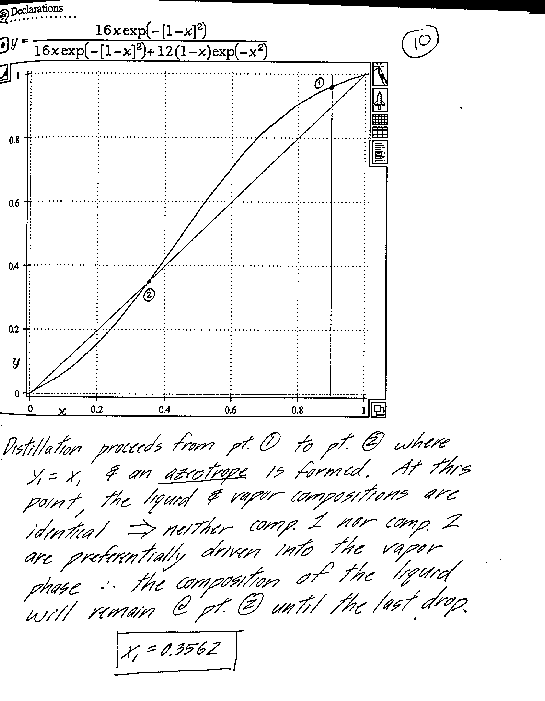 Declarations
y = 16x exp(-[1-x]²) / 16x exp(-[1-x]²)+12(1-x)exp(-x²)
10
1
0.8
0.6
0.4
0.2
0
y
0 x 0.2 0.4 0.6 0.8 1
①
②
Distillation proceeds from pt. ① to pt. ② where
y₁ = x, & an azeotrope is formed. At this
point, the liquid & vapor compositions are
identical ⇒ neither comp. 1 nor comp. 2
are preferentially driven into the vapor
phase ∴ the composition of the liquid
will remain @ pt. ② until the last drop.
x₁ = 0.3562